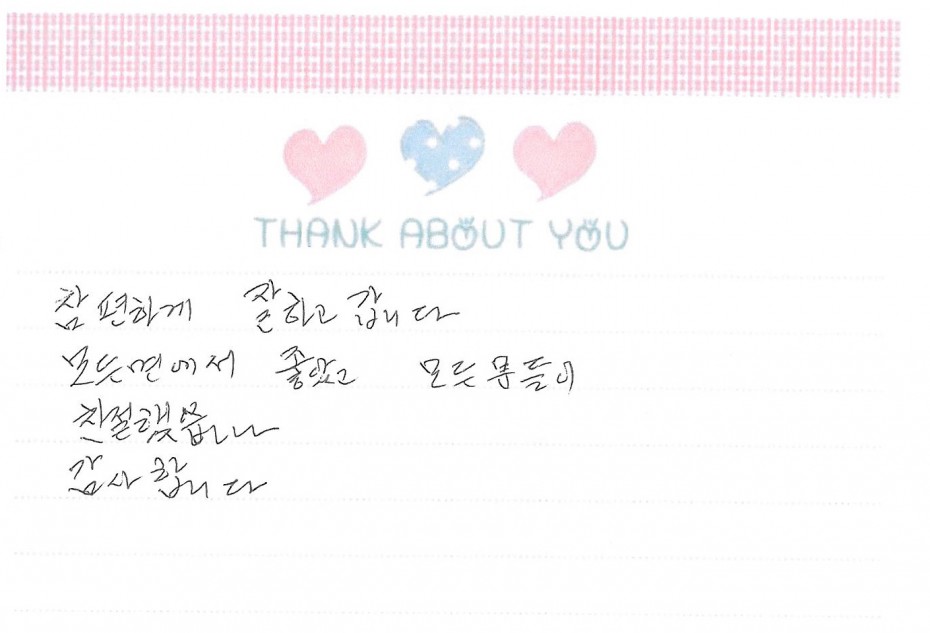 THANK ABOUT YOU
참 편하게 잘하고 갑니다
모든면에서 좋았고 모든 분들이
친절했읍니다
감사 합니다